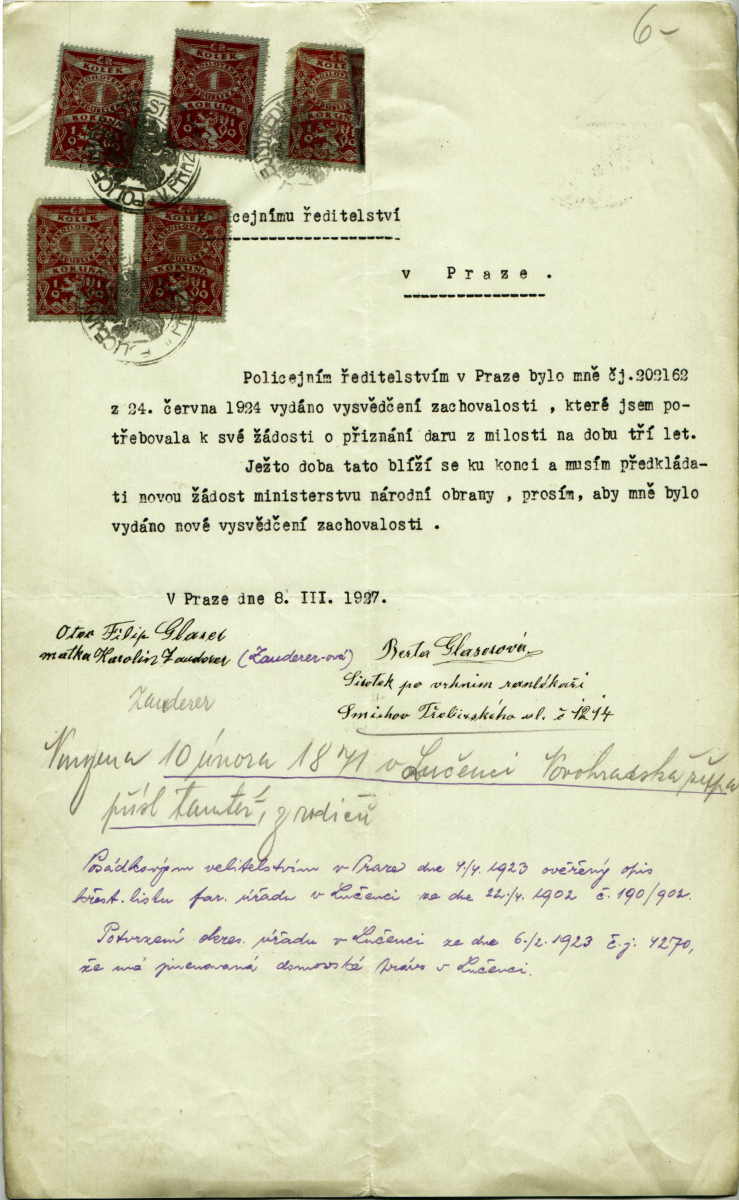 6-
ČS
KOLEK
1
KORUNA
1919
ČS
KOLEK
1
KORUNA
1919
KOLEK
1
KORUNA
ČS
KOLEK
1
KORUNA
ČS
KOLEK
1
KORUNA
Policejnímu ředitelství
v Praze .
Policejním ředitelstvím v Praze bylo mně čj.202162
z 24. června 1924 vydáno vysvědčení zachovalosti , které jsem po-
třebovala k své žádosti o přiznání daru z milosti na dobu tří let.
Ježto doba tato blíží se ku konci a musím předkláda-
ti novou žádost ministerstvu národní obrany , prosím, aby mně bylo
vydáno nové vysvědčení zachovalosti .
V Praze dne 8. III. 1927.
Otec Filip Glaser
matka Karolin Zauderer (Zauderer-ová)
Berta Glaserová
Zauderer
Sirotek po vrhním ranlékaři
Smichov Třebízského ul. č 1214
10 února 1871 v Lučenci Novohradská župa
přísl tamtéž, z rodičů
Posádkovým velitelstvím v Praze dne 4./4. 1923 ověřený opis
křest. listu far. úřadu v Lučenci ze dne 22./4. 1902 č. 190/902.
Potvrzení okres. úřadu v Lučenci ze dne 6./2. 1923 č.j. 4270,
že má jmenovaná domovské právo v Lučenci.